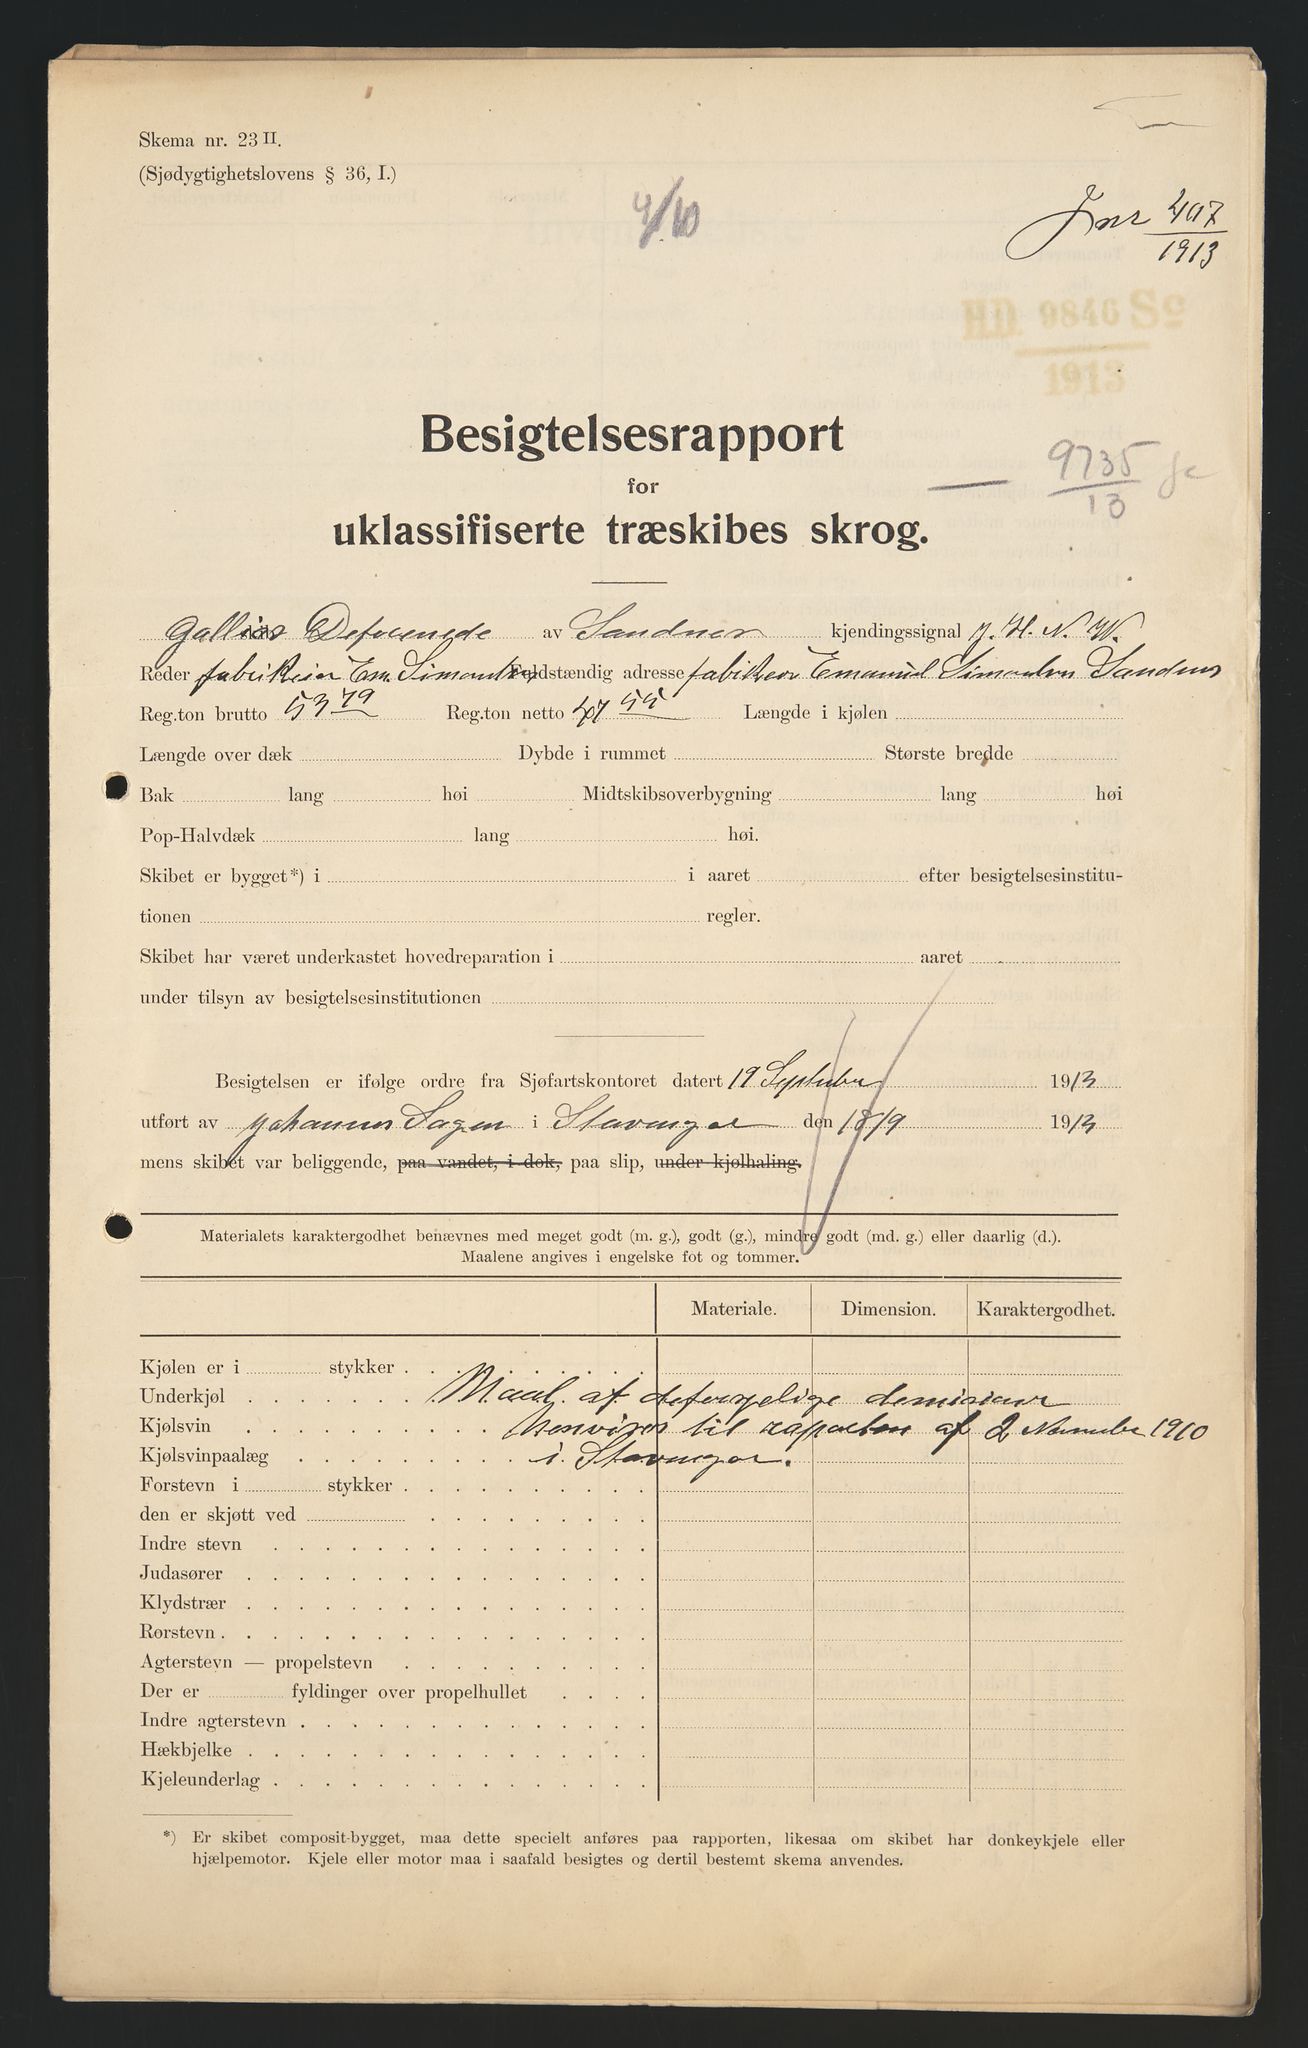 Skema nr. 23 II.
(Sjødygtighetslovens § 36, I.)
4/10
Jnr 407
1913
HD. 9846 Sc
1913
9735
13
Besigtelsesrapport
for
uklassifiserte træskibes skrog.
Gallias De av Sandnes kjendingssignal J. H. N. W.
Reder fabrikeier Em. Simonsen Fuldstændig adresse fabrikeier Emanuel Simonsen Sandnes
Reg.ton brutto 53 79 Reg.ton netto 47 55 Længde i kjølen
Længde over dæk Dybde i rummet Største bredde
Bak lang høi Midtskibsoverbygning lang høi
Pop-Halvdæk lang høi.
Skibet er bygget*) i i aaret efter besigtelsesinstitu-
tionen regler.
Skibet har været underkastet hovedreparation i aaret
under tilsyn av besigtelsesinstitutionen
Besigtelsen er ifølge ordre fra Sjøfartskontoret datert 19 September 1913
utført av Johannes Sagen i Stavanger den 18/9 1913
mens skibet var beliggende, paa vandet, i dok, paa slip, under kjølhaling.
Materialets karaktergodhet benævnes med meget godt (m. g.), godt (g.), mindre godt (md. g.) eller daarlig (d.).
Maalene angives i engelske fot og tommer.
Materiale. Dimension. Karaktergodhet.
Kjølen er i stykker
Underkjøl Maal af deforskjelige
Kjølsvin henvises til raporten af 2 November 1910
Kjølsvinpaalæg i Stavanger.
Forstevn i stykker
den er skjøtt ved
Indre stevn
Judasører
Klydstrær
Rorstevn
Agterstevn — propelstevn
Der er fyldinger over propelhullet
Indre agterstevn
Hækbjelke
Kjeleunderlag
*) Er skibet composit-bygget, maa dette specielt anføres paa rapporten, likesaa om skibet har donkeykjele eller
hjælpemotor. Kjele eller motor maa i saafald besigtes og dertil bestemt skema anvendes.